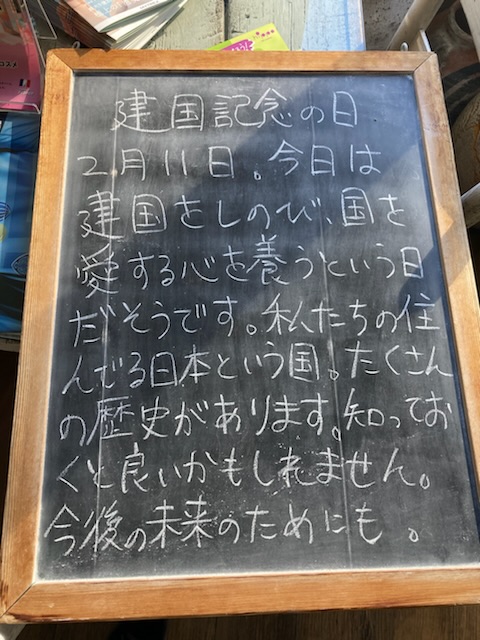 建国記念の日
2月11日。今日は
建国をしのび、国を
愛する心を養うという日
だそうです。私たちの住
んでる日本という国。たくさん
の歴史があります。知ってお
くと良いかもしれません。
今後の未来のためにも。